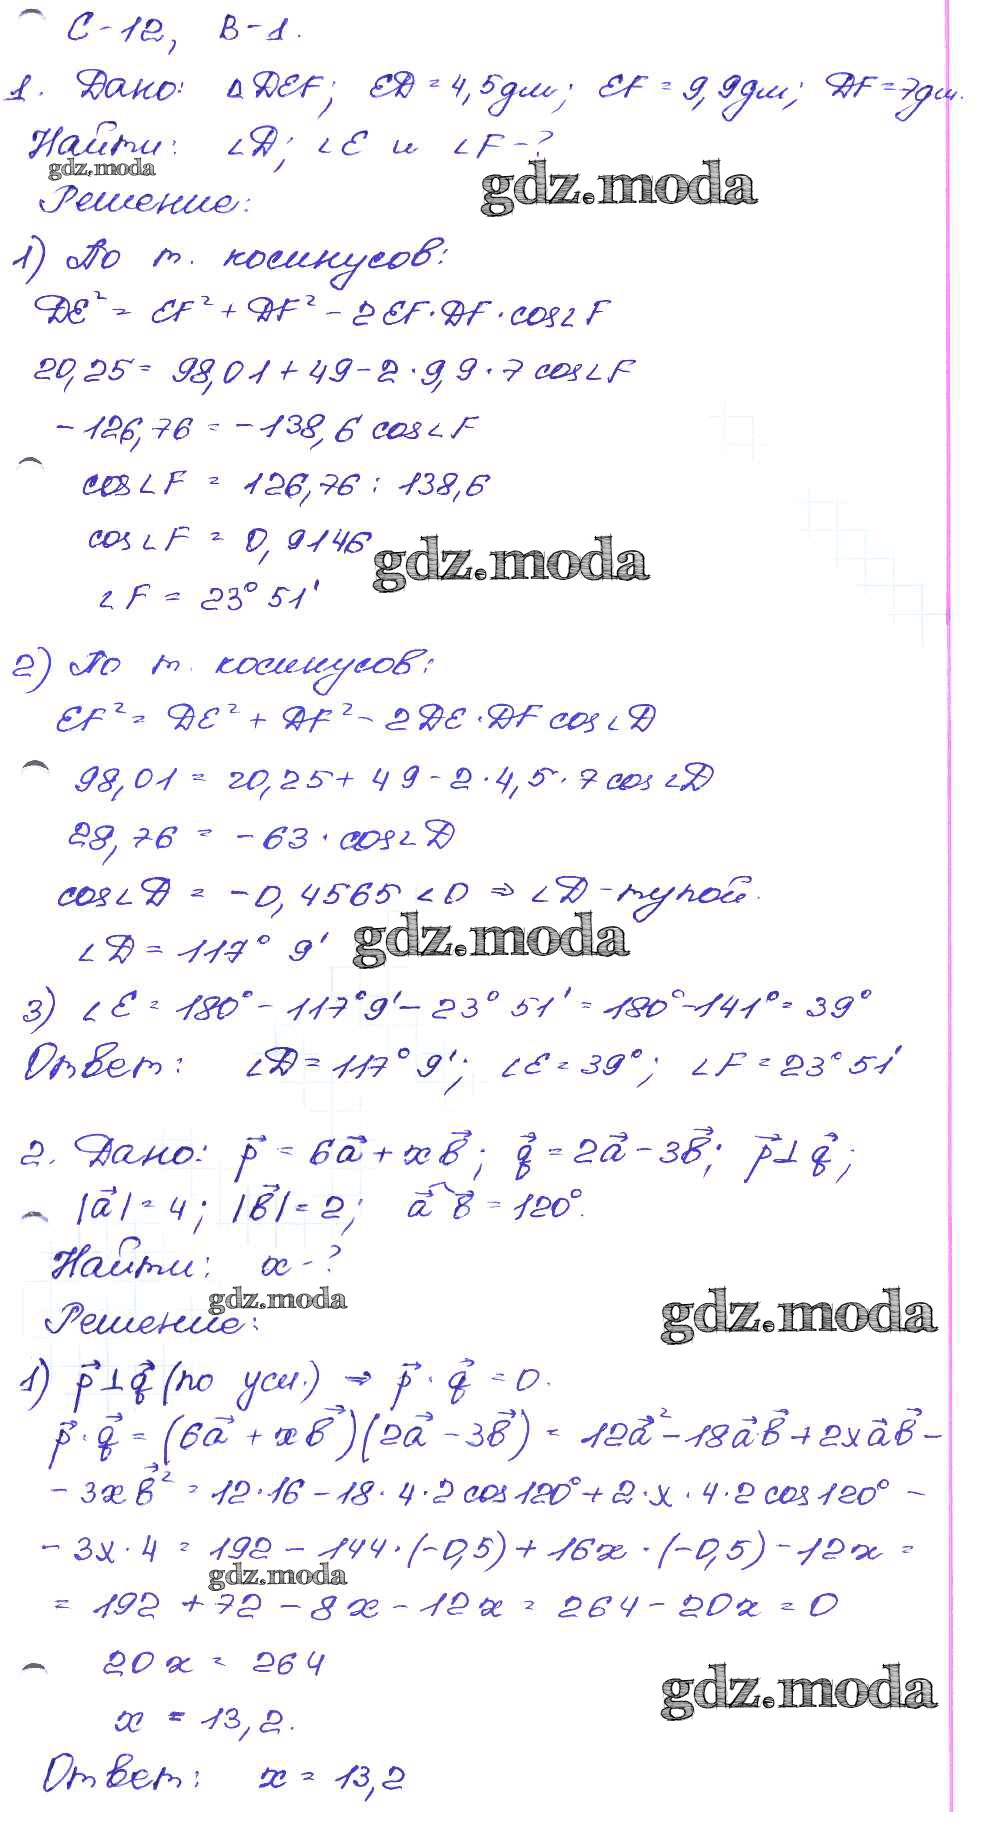 С-12, В-1.
1. Дано: ΔDEF; ED = 4,5дм; EF = 9,9дм; DF = 7дм.
Найти: ∠D; ∠E и ∠F - ?
gdz.moda
gdz.moda
Решение:
1) По т. косинусов:
DE² = EF² + DF² - 2EF·DF·cos∠F
20,25 = 98,01 + 49 - 2·9,9·7 cos∠F
-126,76 = -138,6 cos∠F
cos∠F = 126,76 : 138,6
cos∠F = 0,9146
gdz.moda
∠F = 23° 51'
2) По т. косинусов:
EF² = DE² + DF² - 2DE·DF cos∠D
98,01 = 20,25 + 49 - 2·4,5·7 cos∠D
28,76 = -63·cos∠D
cos∠D = -0,4565 <0 ⇒ ∠D - тупой.
gdz.moda
∠D = 117° 9'
3) ∠E = 180° - 117°9' - 23° 51' = 180° - 141° = 39°
Ответ: ∠D = 117° 9'; ∠E = 39°; ∠F = 23° 51'
2. Дано: p⃗ = 6a⃗ + xb⃗; q⃗ = 2a⃗ - 3b⃗; p⃗ ⊥ q⃗;
|a⃗| = 4; |b⃗| = 2; a⃗ ^ b⃗ = 120°.
Найти: x - ?
gdz.moda
gdz.moda
Решение:
1) p⃗ ⊥ q⃗ (по усл.) ⇒ p⃗ · q⃗ = 0.
p⃗ · q⃗ = (6a⃗ + xb⃗)(2a⃗ - 3b⃗) = 12a⃗² - 18a⃗·b⃗ + 2xa⃗b⃗ -
- 3xb⃗² = 12·16 - 18·4·2 cos120° + 2·x·4·2 cos120° -
- 3x·4 = 192 - 144·(-0,5) + 16x·(-0,5) - 12x =
gdz.moda
= 192 + 72 - 8x - 12x = 264 - 20x = 0
20x = 264
gdz.moda
x = 13,2.
Ответ: x = 13,2